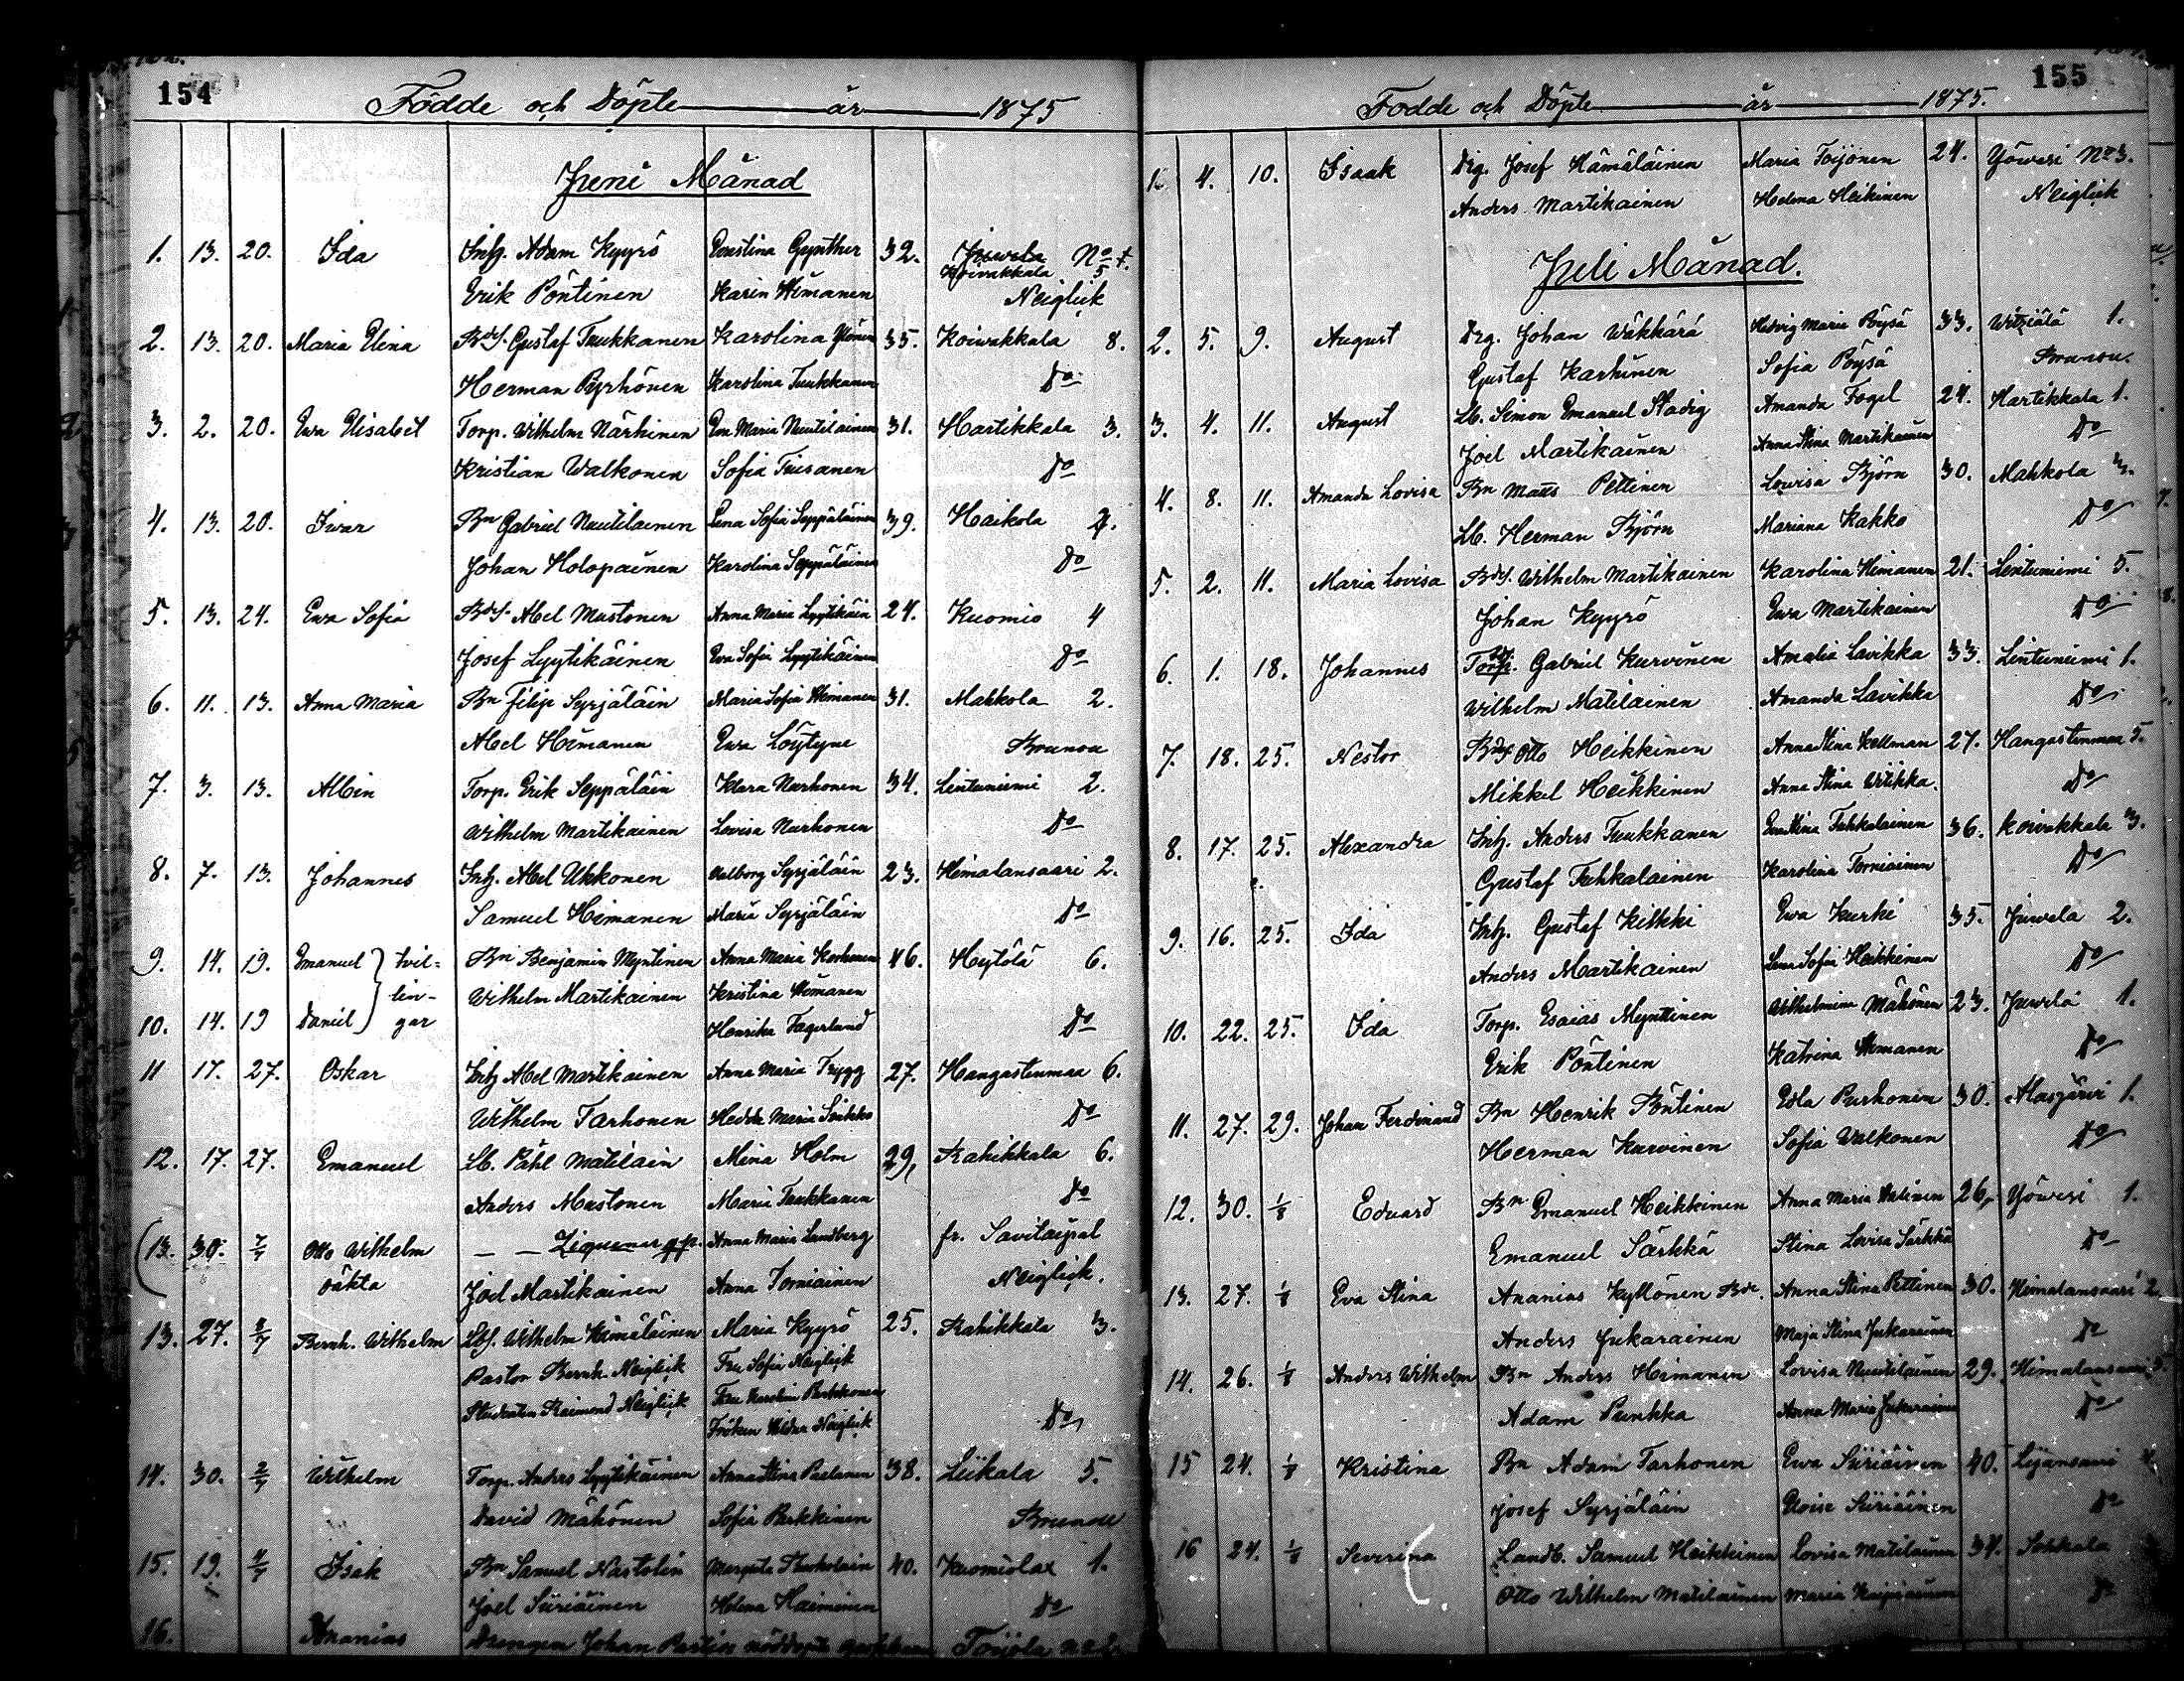 154
Födde och Döpte år 1875
Juni Månad
1. 13. 20. Ida Inh. Adam Kyyrö Cristina Gynther 32. Juvola No 1.
Koivakkala 5
Erik Pöntinen Karin Himanen Neiglick
2. 13. 20. Maria Elina Bdes. Gustaf Tuukkanen Karolina Ylönen 35. Koivakkala 8.
Herman Pyrhönen Karolina Tuukkanen Do
3. 2. 20. Ewa Elisabet Torp. Wilhelm Närhinen Eva Maria Nuutilainen 31. Hartikkala 3.
Kristian Walkonen Sofia Tiusanen Do
4. 13. 20. Iwar Bn Gabriel Nuutilainen Lena Sofia Seppäläinen 39. Haikola 2.
Johan Holopainen Karolina Seppäläinen Do
5. 13. 24. Ewa Sofia Bdes. Abel Mustonen Anna Maria Lyytikäin 24. Kuomio 4
Josef Lyytikäinen Eva Sofia Lyytikäinen Do
6. 11. 13. Anna Maria Bn Filip Syrjäläin Maria Sofia Himanen 31. Mahkola 2.
Abel Himanen Ewa Löytyne Brunou
7. 3. 13. Albin Torp. Erik Seppäläin Klara Nurhonen 34. Lintuniemi 2.
Wilhelm Martikainen Lovisa Nurhonen Do
8. 7. 13. Johannes Inh. Abel Ukkonen Walborg Syrjäläin 23. Himalansaari 2.
Samuel Himanen Maria Syrjäläin Do
9. 14. 19. Emanuel tvil- Bn Benjamin Myntinen Anna Maria Korhonen 46. Heytölä 6.
lin- Wilhelm Martikainen Kristina Himanen
10. 14. 19 Daniel gar Henrika Fagerlund Do
11 17. 27. Oskar Inh Abel Martikainen Anna Maria Trygg 27. Hangastenmaa 6.
Wilhelm Tarhonen Hedda Maria Sinkko Do
12. 17. 27. Emanuel Lb. Påhl Matilain Mina Holm 29, Rahikkala 6.
Anders Mustonen Maria Tuukkanen Do
(13. 30. 2/7 Otto Wilhelm — — Ziguenar g.p. Anna Maria Lundberg fr. Savitaipal
oäkta Joel Martikainen Anna Torniainen Neiglick.
13. 27. 2/7 Bernh. Wilhelm Lbs. Wilhelm Hämäläinen Maria Kyyrö 25. Rahikkala 3.
Pastor Bernh. Neiglick Fru Sofia Neiglick
Studenten Raimond Neiglick Fru Karolin Parkkonen
Fröken Hilda Neiglick Do
14. 30. 2/7 Wilhelm Torp. Anders Lyytikäinen Anna Stina Paalanen 38. Liikala 5.
David Mähönen Sofia Parkkinen Brunou
15. 19. 4/7 Isak Bn Samuel Nästolin Margeta Ruokolain 40. Kuomiolax 1.
Joel Siiriäinen Helena Haiminen Do
16. Ananias Drengen Johan
155
Födde och Döpte år 1875.
1. 4. 10. Isaak Drg. Josef Hämäläinen Maria Toijonen 24. Yövesi No 3.
Anders Martikainen Helena Heikinen Neiglick
Juli Månad.
2. 5. 9. August Drg. Johan Wäkkärä Hedvig Maria Pöysä 33. Witsiälä 1.
Gustaf Karhinen Sofia Pöysä Brunou.
3. 4. 11. August Lb. Simon Emanuel Stadig Amanda Fogel 24. Hartikkala 1.
Joel Martikainen Anna Stina Martikainen Do
4. 8. 11. Amanda Lovisa Bn Matts Pettinen Lovisa Björn 30. Mahkola 3.
Lb. Herman Björn Mariana Kakko Do
5. 2. 11. Maria Lovisa Bdes. Wilhelm Martikainen Karolina Himanen 21. Lintuniemi 5.
Johan Kyyrö Ewa Martikainen Do
6. 1. 18. Johannes Torp. Gabriel Kurvinen Amalia Lavikka 33. Lintuniemi 1.
Wilhelm Matilainen Amanda Lavikka Do
7. 18. 25. Nestor Bdes Otto Heikkinen Anna Stina Kellman 27. Hangastenmaa 5.
Mikkel Heikkinen Anna Stina Witikka. Do
8. 17. 25. Alexandra Inh. Anders Tuukkanen Eva Stina Tahkalainen 36. Koivakkala 3.
Gustaf Tahkalainen Karolina Torniainen Do
9. 16. 25. Ida Inh. Gustaf Kilkki Ewa Kurki 35. Juvola 2.
Anders Martikainen Lena Sofia Heikkinen Do
10. 22. 25. Ida Torp. Esaias Mynttinen Wilhelmina Mähönen 23. Juvola 1.
Erik Pöntinen Katrina Himanen Do
11. 27. 29. Johan Ferdinand Bn Henrik Pöntinen Edla Purhonen 30. Alasjärvi 1.
Herman Kurvinen Sofia Walkonen Do
12. 30. 1/8 Eduard Bn Emanuel Heikkinen Anna Maria Valinen 26, Yövesi 1.
Emanuel Särkkä Stina Lovisa Särkkä Do
13. 27. 1/8 Eva Stina Ananias Kyllönen Bde. Anna Stina Pettinen 30. Himalansaari 2.
Anders Jukarainen Maja Stina Jukarainen Do
14. 26. 1/8 Anders Wilhelm Bn Anders Himanen Lovisa Nuutilainen 29. Himalansaari 5.
Adam Punkka Anna Maria Jukarainen Do
15 24. 1/8 Kristina Bn Adam Tarhonen Ewa Siiriäinen 40. Lijansaari
Josef Syrjäläin Eloise Siiriäinen Do
16 24. 1/8 Severina Landb. Samuel Heikkinen Lovisa Matilainen 34. Sokkala
Otto Wilhelm Matilainen Maria Do